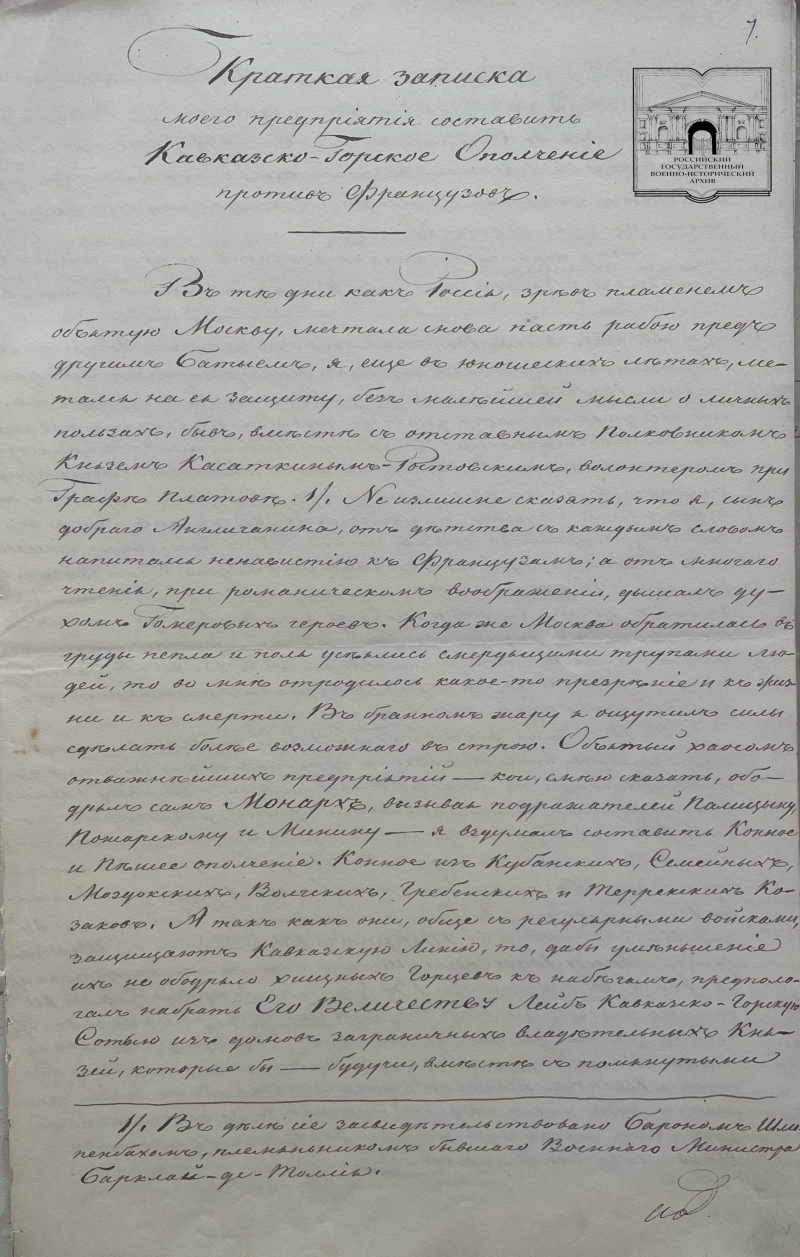 7.
Краткая записка
моего предпріятія составить
Кавказско-Горское Ополченіе
противъ Французовъ.
РОССИЙСКИЙ
ГОСУДАРСТВЕННЫЙ
ВОЕННО-ИСТОРИЧЕСКИЙ
АРХИВ
Въ тѣ дни какъ Россія, зрѣвъ пламенемъ
объятую Москву, мечтала снова пасть рабою предъ
другимъ Батыемъ, я, еще въ юношескихъ лѣтахъ, ме-
талъ на ея защиту, безъ малѣйшей мысли о личныхъ
пользахъ, бывъ, вмѣстѣ съ отставнымъ Полковникомъ
Княземъ Касаткинымъ-Ростовскимъ, волонтеромъ при
Графѣ Платовѣ. 1/. Не излишне сказать, что я, сынъ
добраго Англичанина, отъ дѣтства съ каждымъ словомъ
напиталъ ненавистію къ Французамъ; а отъ многаго
чтенія, при романическомъ воображеніи, дышалъ ду-
хомъ Гомеровыхъ героевъ. Когда же Москва обратилась въ
груды пепла и поля усѣялись смердящими трупами лю-
дей, то во мнѣ отродилось какое-то презрѣніе и къ жиз-
ни и къ смерти. Въ бранномъ жару я ощутилъ силы
сдѣлать болѣе возможнаго въ строю. Объятый хаосомъ
отважнѣйшихъ предпріятій — кои, смѣю сказать, обо-
дрялъ самъ Монархъ, вызывая подражателей Палицыну,
Пожарскому и Минину — я вздумалъ составить Конное
и Пѣшее ополченіе. Конное изъ Кубанскихъ, Семейныхъ,
Моздокскихъ, Волгскихъ, Гребенскихъ и Террекскихъ Ко-
заковъ. А такъ какъ они, обще съ регулярными войсками,
защищаютъ Кавказскую Линію, то, дабы уменьшеніе
ихъ не ободрило хищныхъ Горцевъ къ набѣгамъ, предпола-
галъ набрать Его Величеству Лейбъ Кавказско-Горскую
Сотню изъ домовъ заграничныхъ владѣтельныхъ Кня-
зей, которые бы — будучи, вмѣстѣ съ помянутыми
1/. Въ дѣлѣ сіе засвидѣтельствовано Барономъ Шли
пенбахомъ, племянникомъ бывшаго Военнаго Министра
Барклай-де-Толлія.